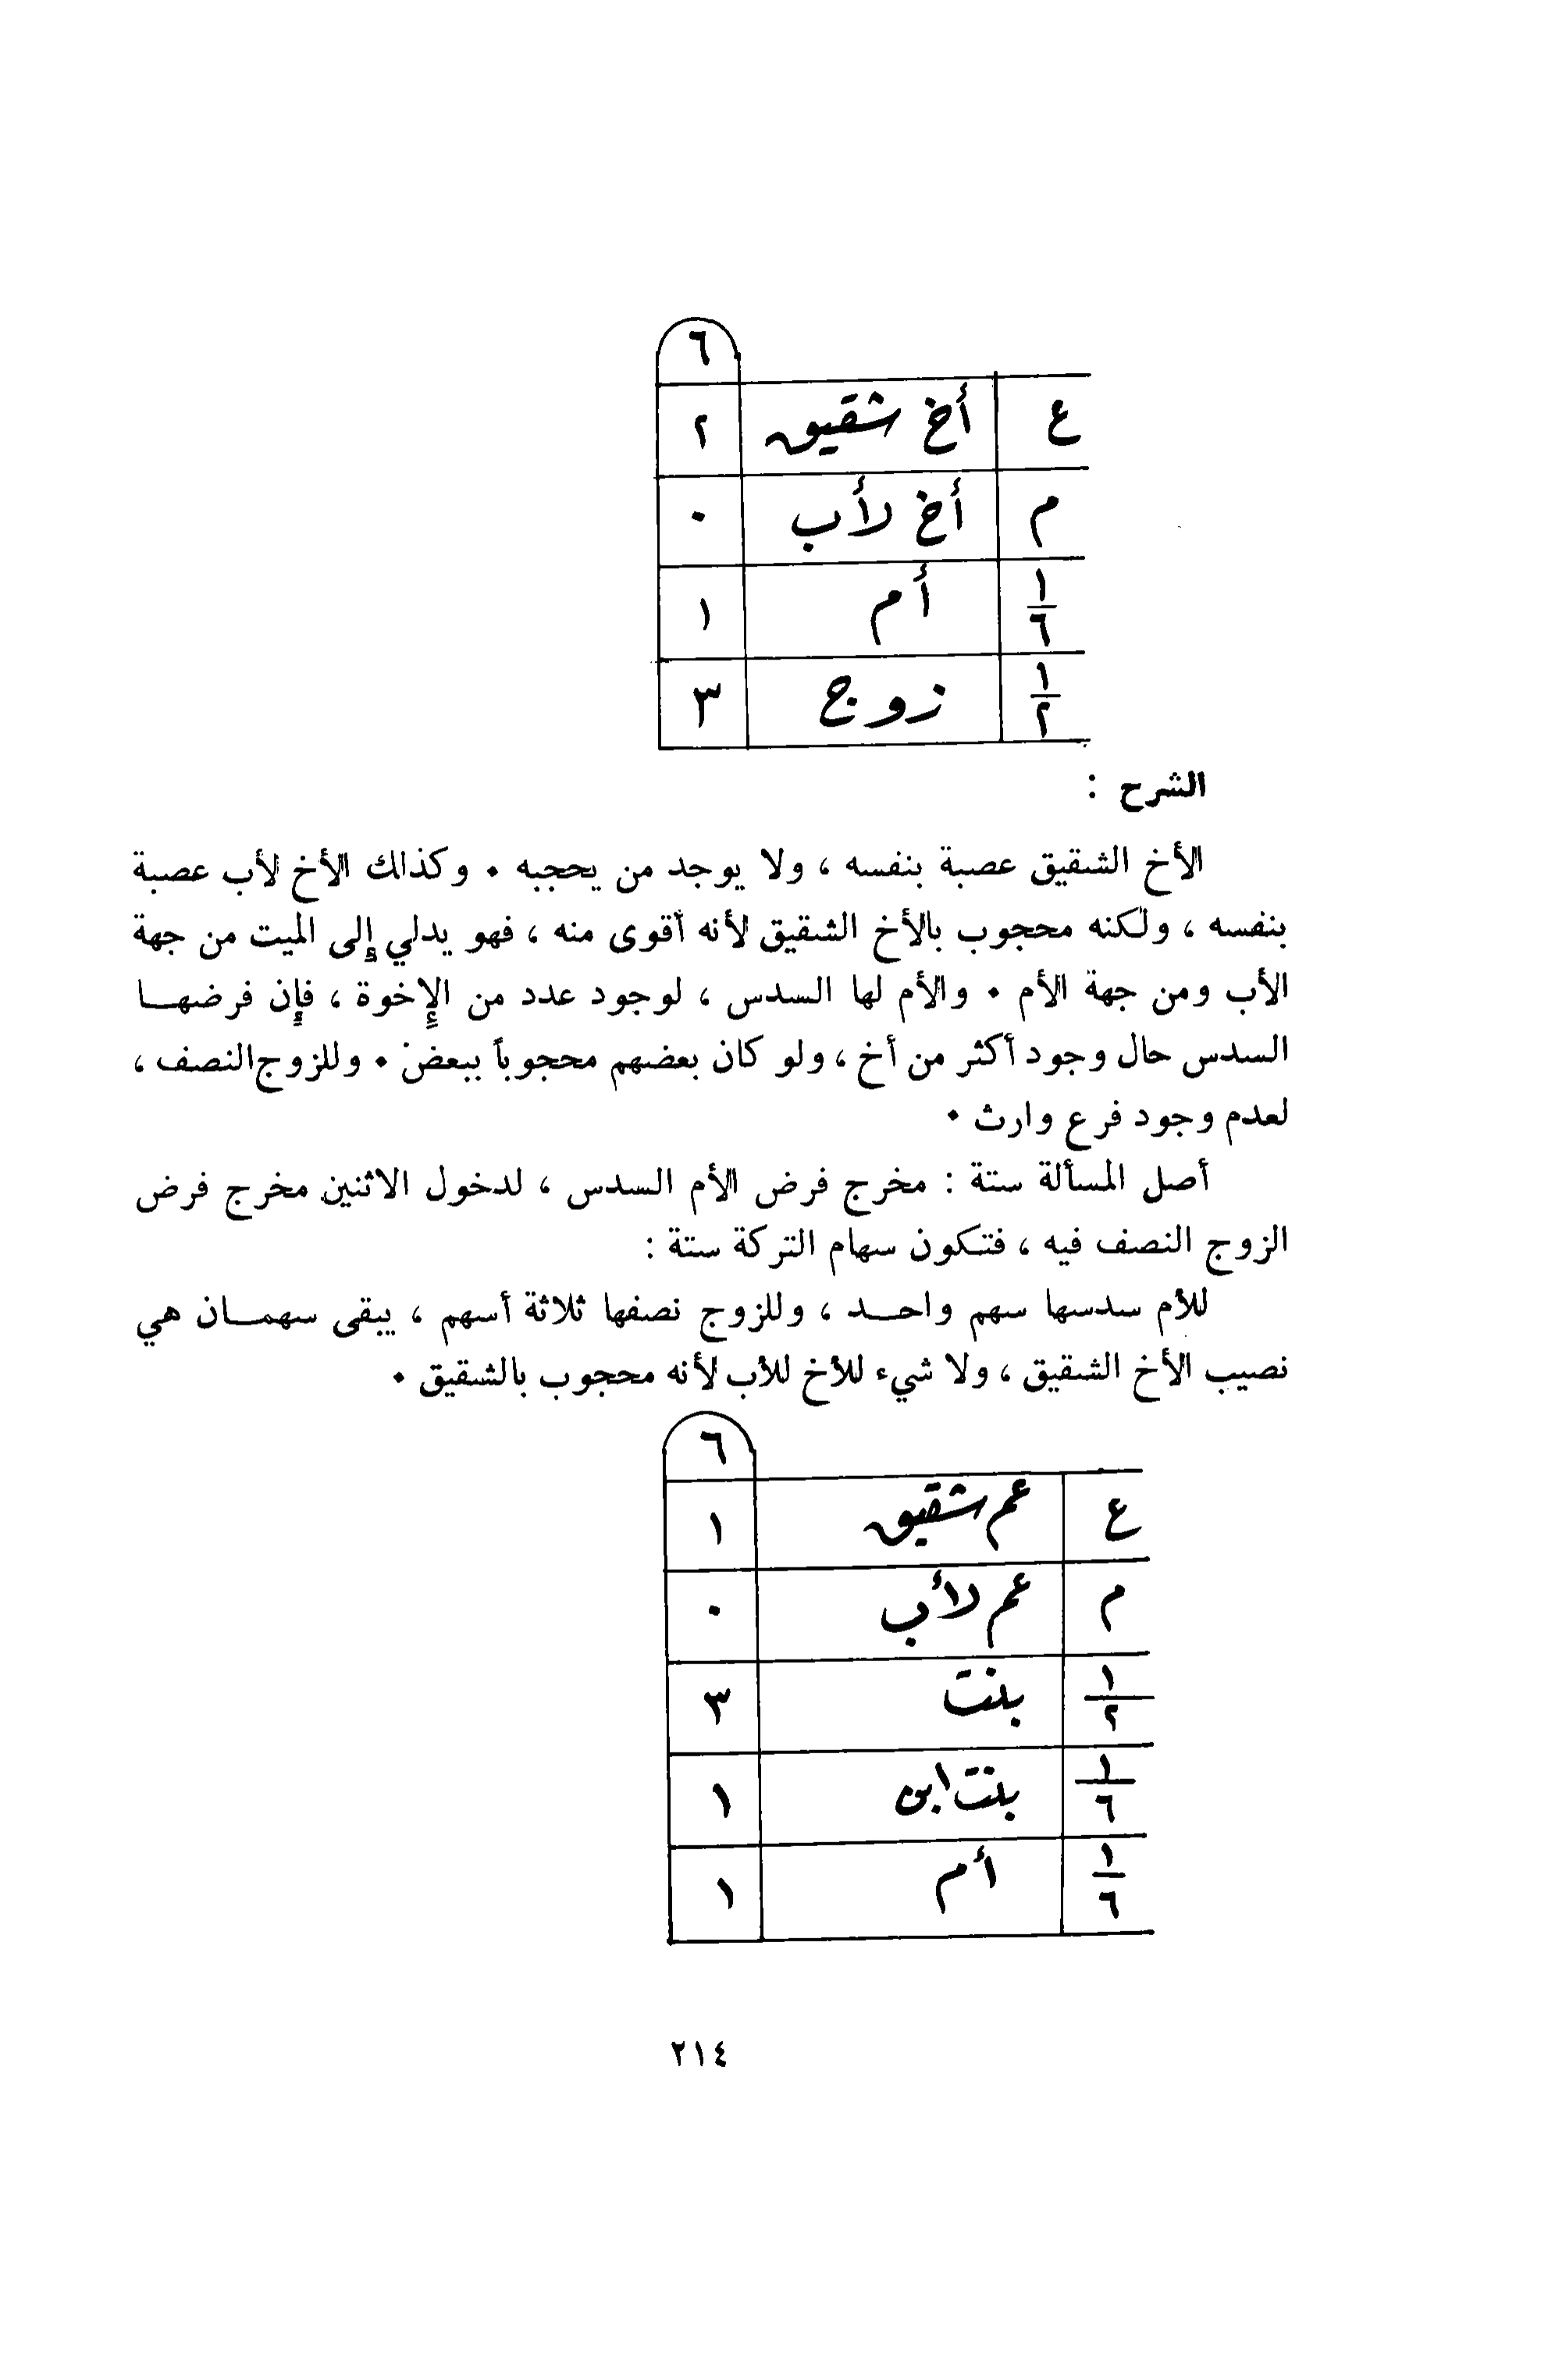 ٦
ع أخ شقيق ٢
م أخ لأب ٠
١/٦ أم ١
١/٢ زوج ٣
الشرح :
الأخ الشقيق عصبة بنفسه ، ولا يوجد من يحجبه ٠ وكذلك الأخ لأب عصبة
بنفسه ، ولكنه محجوب بالأخ الشقيق لأنه أقوى منه ، فهو يدلي إلى الميت من جهة
الأب ومن جهة الأم ٠ والأم لها السدس ، لوجود عدد من الإخوة ، فإن فرضهــا
السدس حال وجود أكثر من أخ ، ولو كان بعضهم محجوباً ببعض ٠ وللزوج النصف ،
لعدم وجود فرع وارث ٠
أصل المسألة ستة : مخرج فرض الأم السدس ، لدخول الاثنين مخرج فرض
الزوج النصف فيه ، فتكون سهام التركة ستة :
للأم سدسها سهم واحــد ، وللزوج نصفها ثلاثة أسهم ، يبقى سهمــان هي
نصيب الأخ الشقيق ، ولا شيء للأخ للأب لأنه محجوب بالشقيق ٠
٦
ع عم شقيق ١
م عم لأب ٠
١/٢ بنت ٣
١/٦ بنت ابن ١
١/٦ أم ١
٢١٤